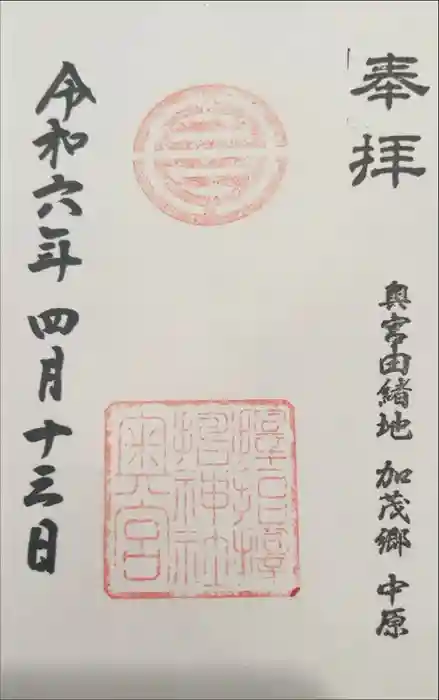 奉拝
奥宮由緒地 加茂郷 中原
神社
奥宮
令和六年 四月 十三日